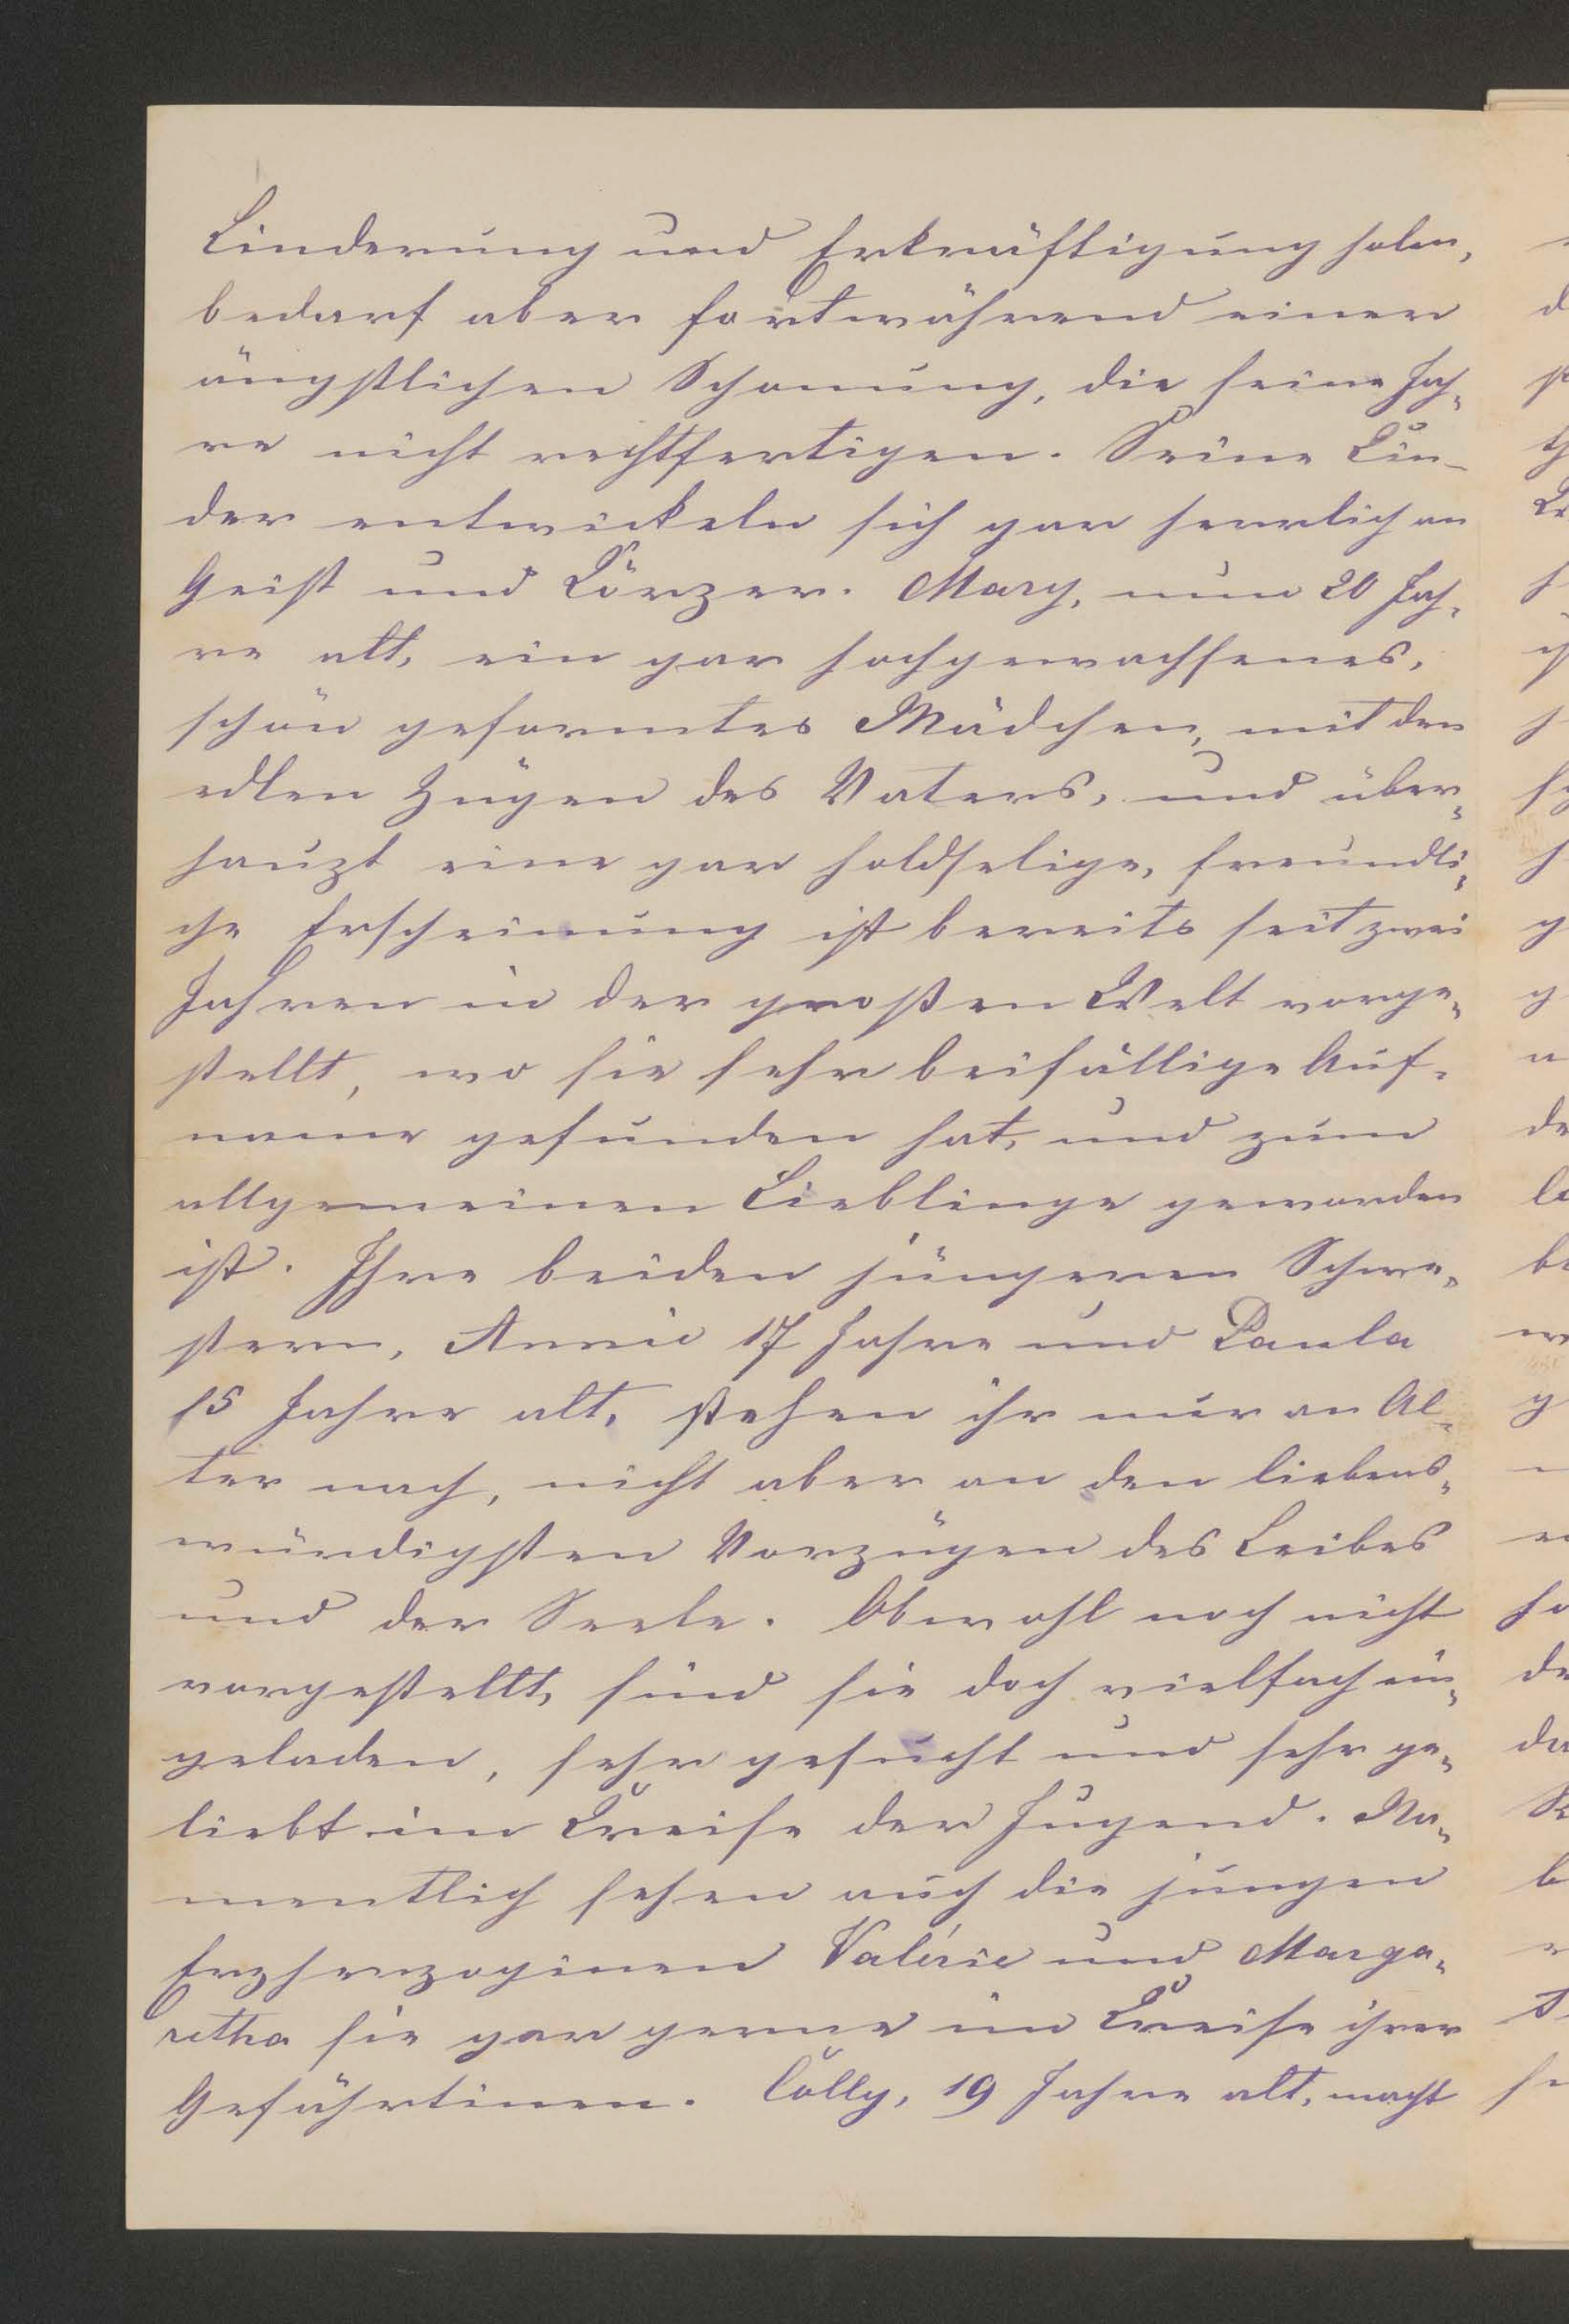 Linderung und Erkräftigung holen,
bedarf aber fortwährend einer
ängstlichen Schonung, die seine Jah=
re nicht rechtfertigen. Seine Kin-
der entwickeln sich gar herrlich an
Geist und Körper. Mary, nun 20 Jah=
re alt, ein gar hochgewachsenes,
schön geformtes Mädchen, mit den
edlen Zügen des Vaters, und über=
haupt eine gar holdselige, freundli=
che Erscheinung ist bereits seit zwei
Jahren in der großen Welt vorge=
stellt, wo sie sehr beifällige Auf=
name gefunden hat, und zum
allgemeinen Lieblinge geworden
ist. Ihre beiden jüngeren Schwe=
stern, Annie 17 Jahre und Paula
15 Jahre alt, stehen ihr nur an Al=
ter nach, nicht aber an den liebens=
würdigsten Vorzügen des Leibes
und der Seele. Obwohl noch nicht
vorgestellt, sind sie doch vielfach ein=
geladen, sehr gesucht und sehr ge=
liebt im Kreise der Jugend. Na=
mentlich sehen auch die jungen
Erzherzoginen Valérie und Marga=
retha sie gar gerne im Kreise ihrer
Gefährtinen. Cólly, 19 Jahre alt, macht